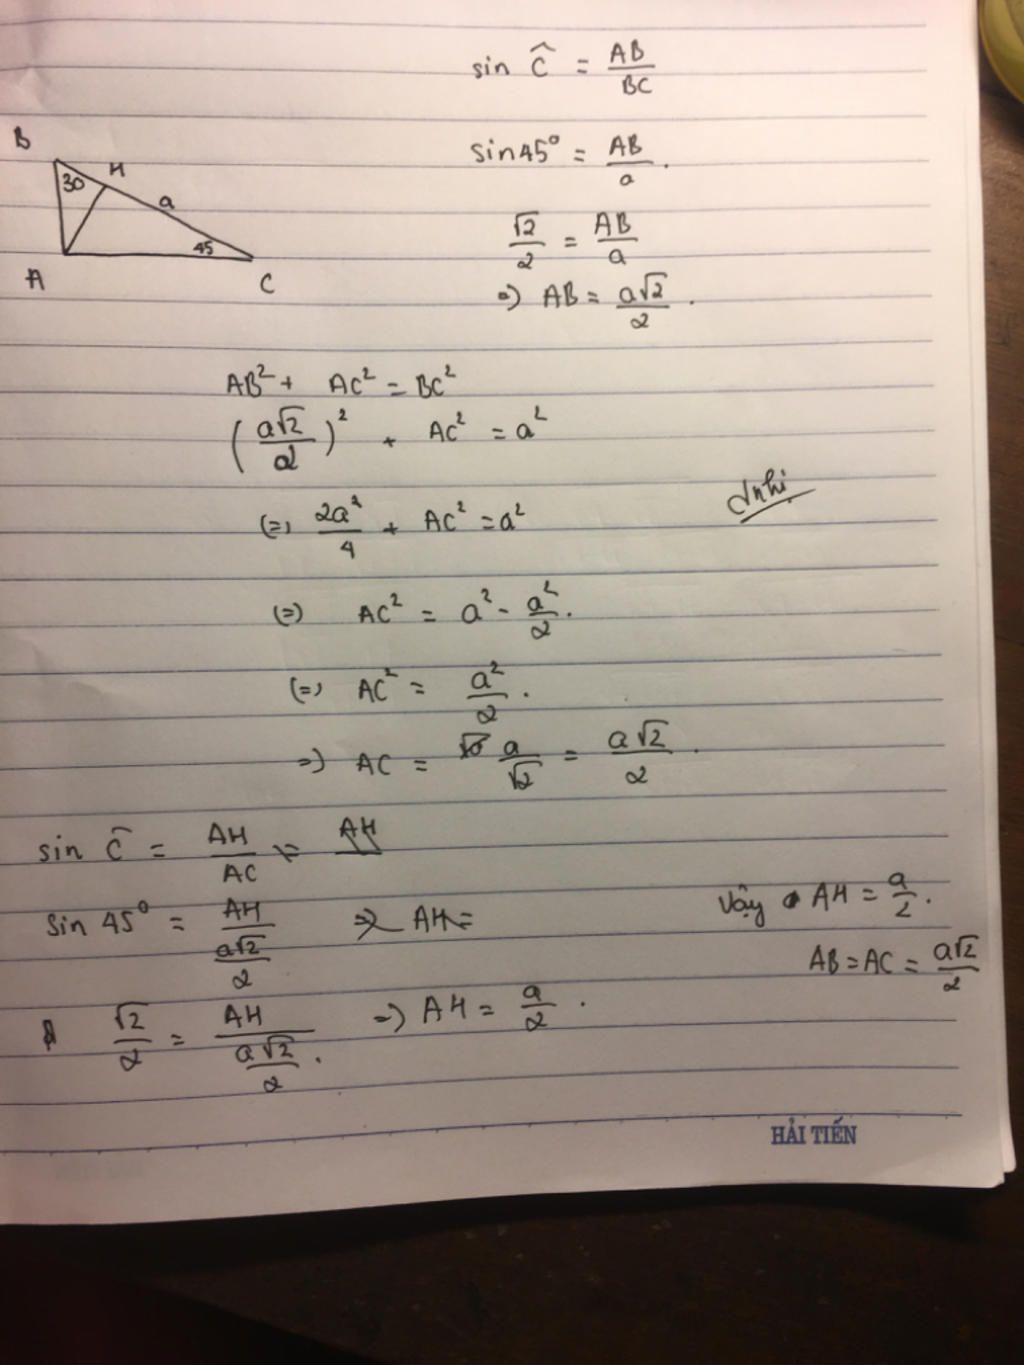 sin Ĉ = AB/BC
B
30
H
a
45
A
C
sin45° = AB/a.
√2/2 = AB/a
=) AB = a√2/2.
AB² + AC² = BC²
(a√2/2)² + AC² = a²
(=) 2a²/4 + AC² = a²
(=) AC² = a² - a²/2.
(=) AC² = a²/2.
=) AC = a/√2 = a√2/2.
sin Ĉ = AH/AC = AH
Sin 45° = AH/(a√2/2) => AH=
√2/2 = AH/(a√2/2). =) AH = a/2.
Vậy AH = a/2.
AB = AC = a√2/2
HẢI TIẾN